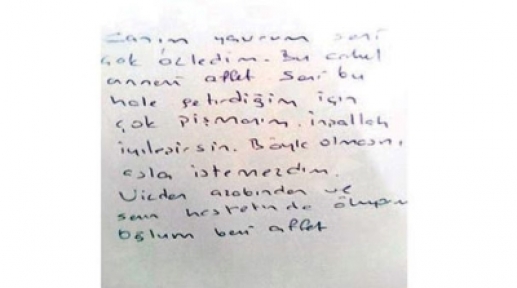 Canım yavrum seni
çok özledim. Bu cahil
anneni affet seni bu
hale getirdiğim için
çok pişmanım. inşallah
iyileşirsin. Böyle olmasını
asla istemezdim.
Vicdan azabından ve
senin hasretinde ölüyorum
Oğlum beni affet